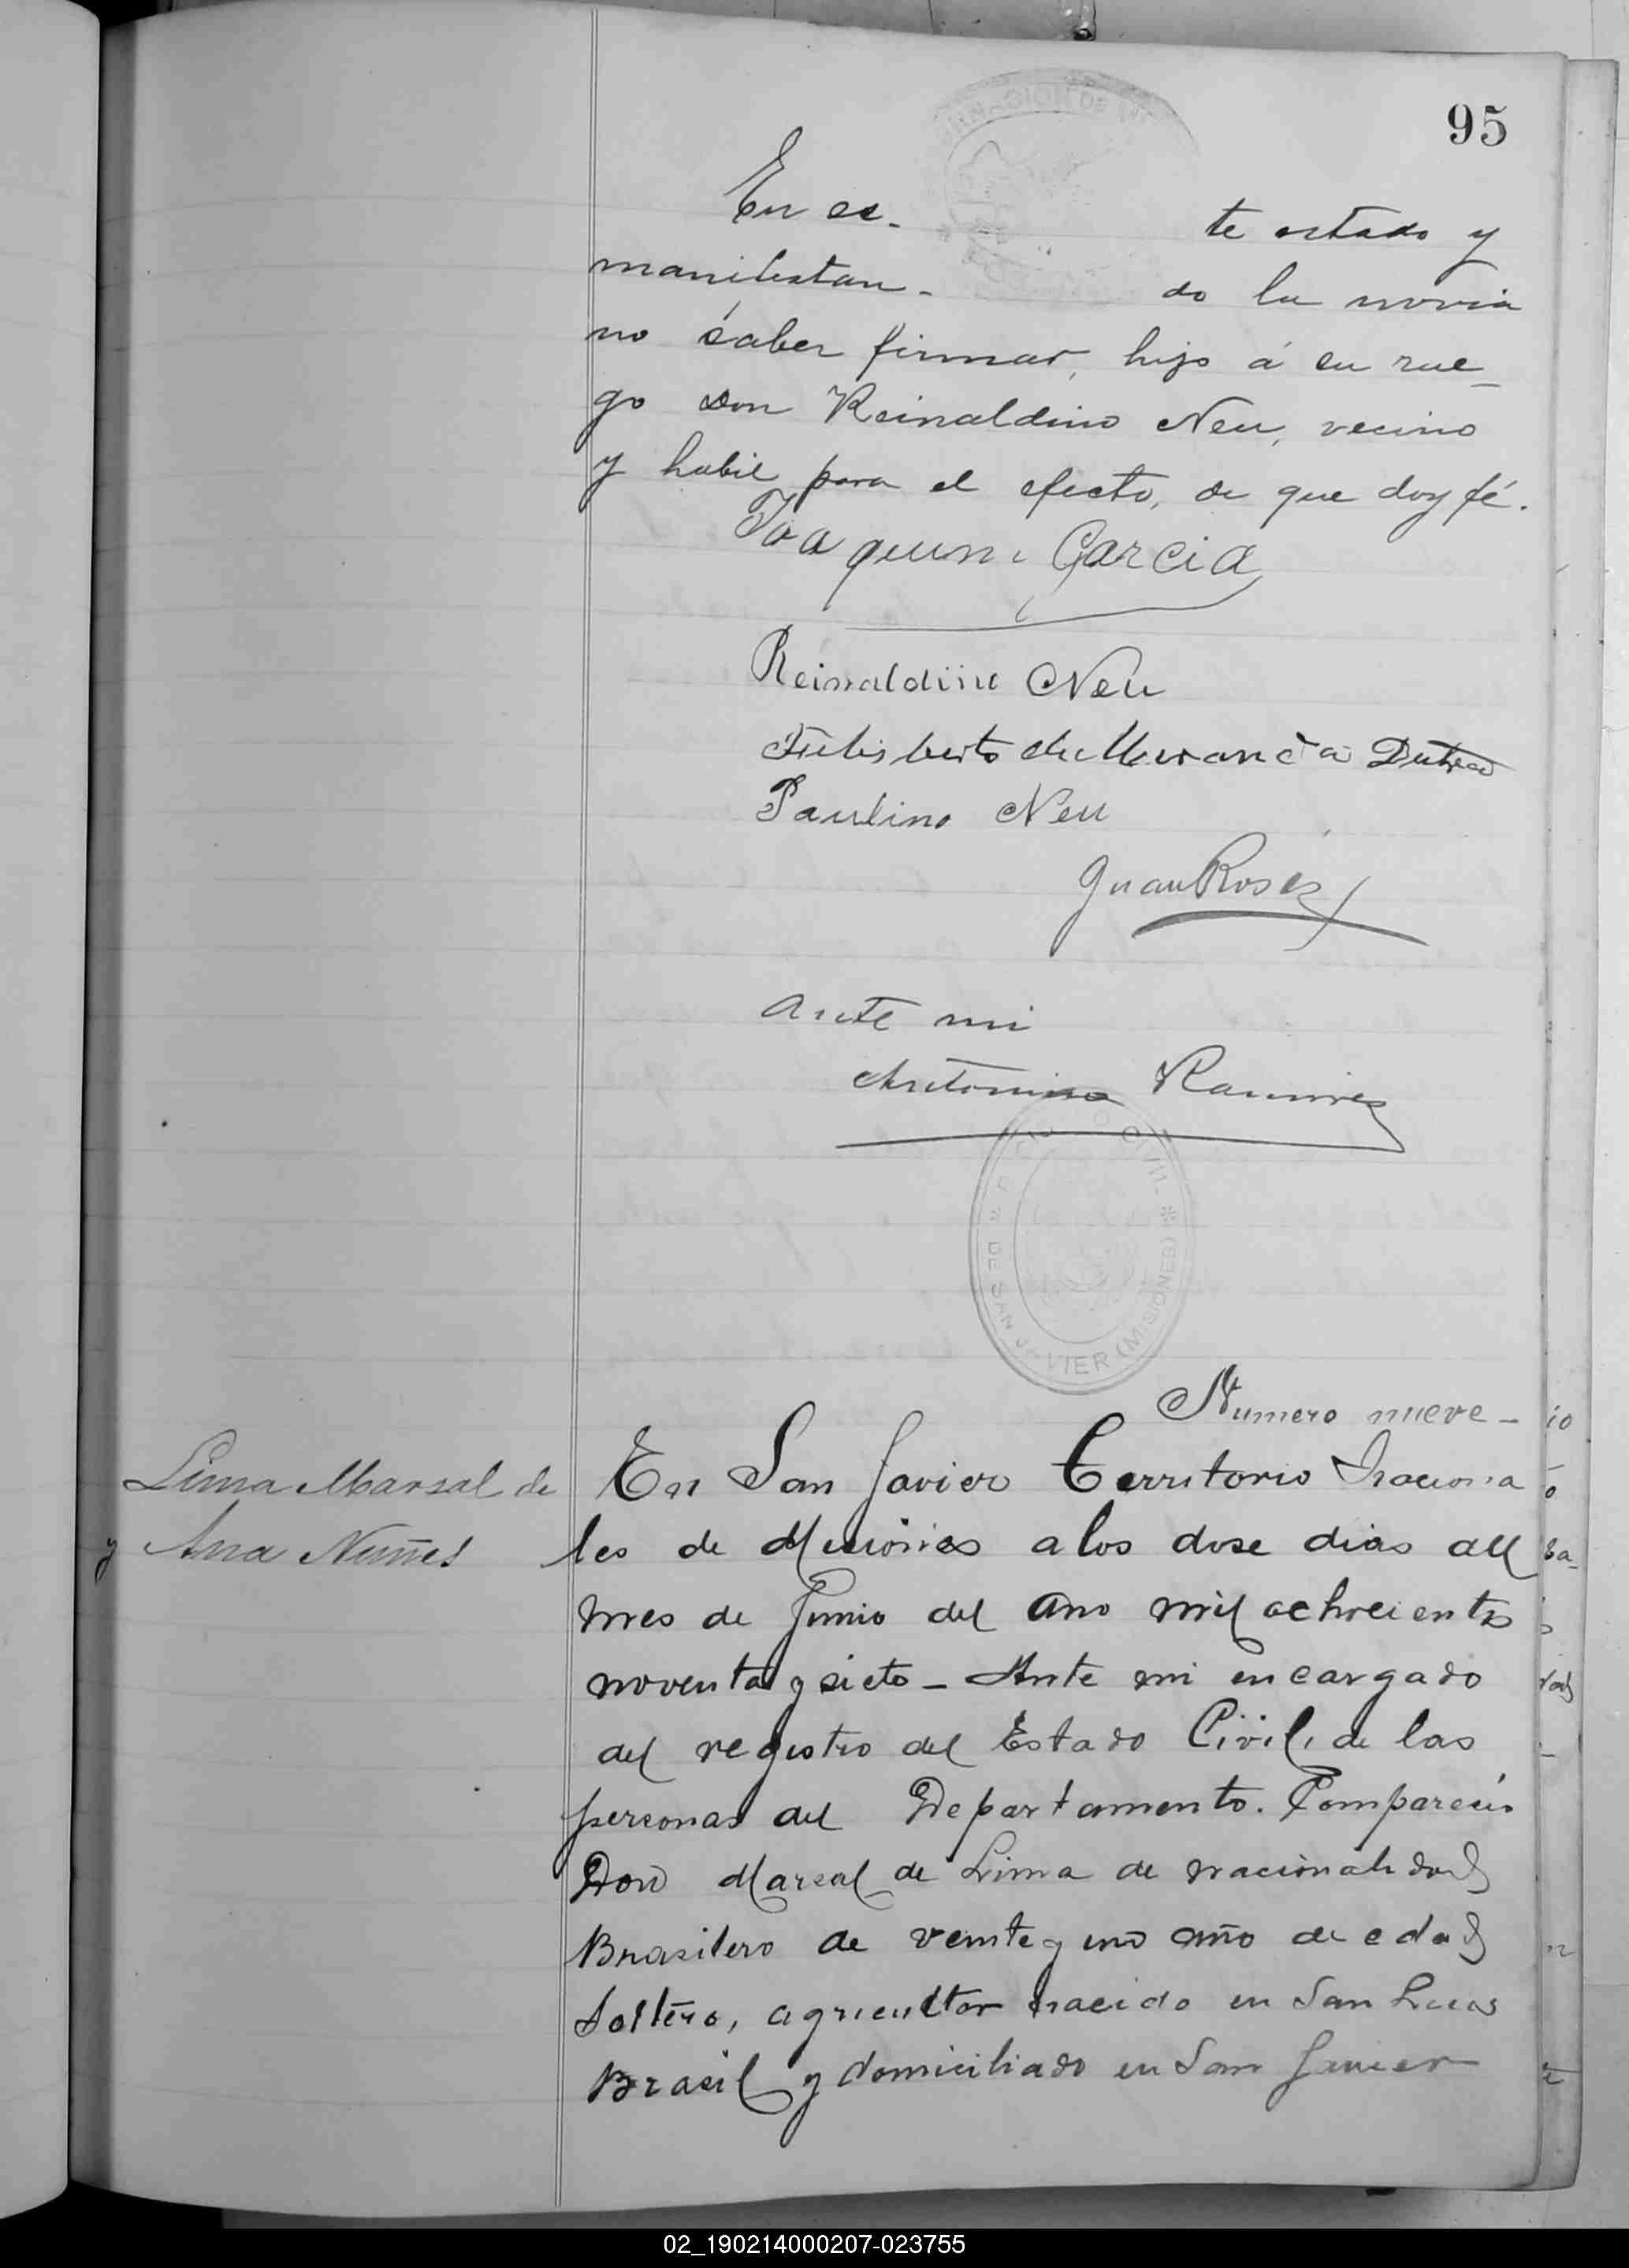 95
En es- te estado y
manifestan- do la novia
no saber firmar, hizo á su rue-
go Don Reinaldino Neu, vecino
y habil para el efecto, de que doy fé.
Joaquin Garcia
Reinaldino Neu
Dutra
Paulino Neu
Juan Rosés
Ante mi
Antonino Ramirez
DE SAN JAVIER (MISIONES) * CIVIL
Numero nueve -
Lima Marsal de
y Ana Nuñes
En San Javier Territorio Naciona
les de Misiones a los dose dias del
mes de Junio del año mil ochocientos
noventa y siete - Ante mi encargado
del registro del Estado Civil, de las
personas del Departamento. Comparecio
Don Marsal de Lima de nacionalidad
Brasilero de veinte y uno año de edad
Soltero, agricultor nacido en San Lucas
Brasil y domiciliado en San Javier
02_190214000207-023755